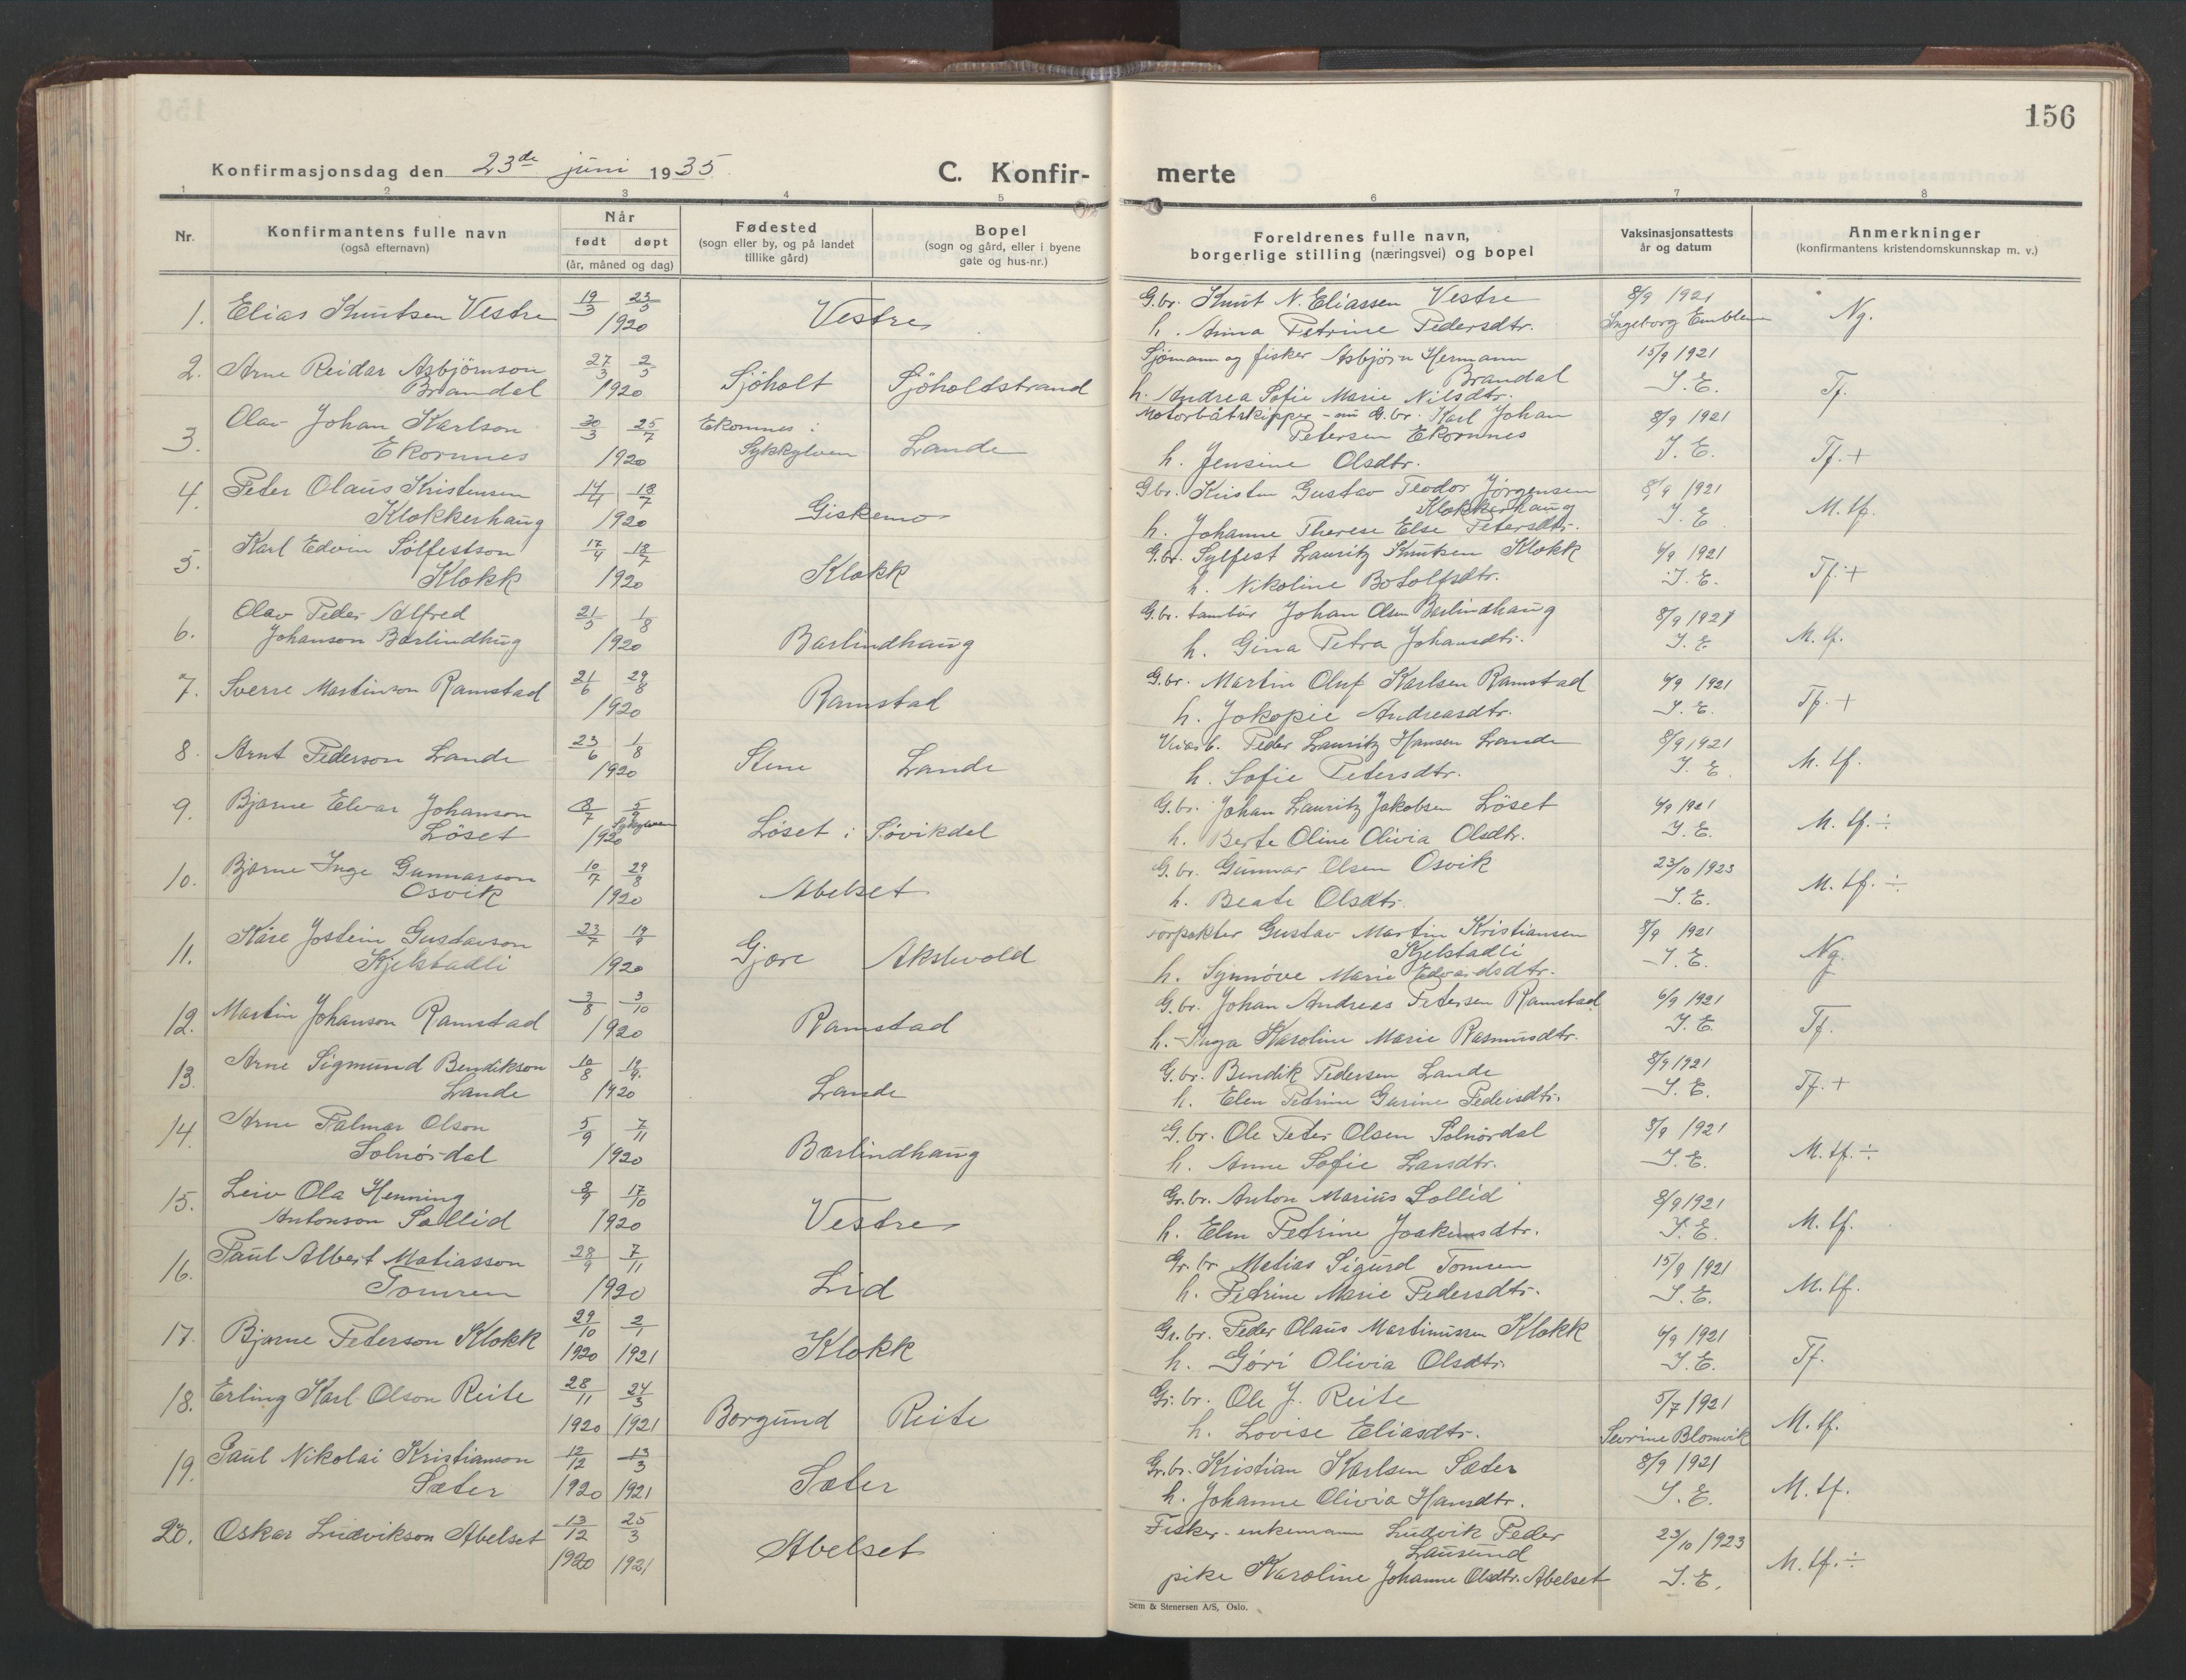 156
Konfirmasjonsdag den 23de juni 1935
C. Konfir- merte
1 2 3 4 5 6 7 8
Nr.
Konfirmantens fulle navn
(også efternavn)
Når
født døpt
(år, måned og dag)
Fødested
(sogn eller by, og på landet
tillike gård)
Bopel
(sogn og gård, eller i byene
gate og hus-nr.)
Foreldrenes fulle navn,
borgerlige stilling (næringsvei) og bopel
Vaksinasjonsattests
år og datum
Anmerkninger
(konfirmantens kristendomskunnskap m. v.)
1. Elias Knutsen Vestre 19/3 23/5 1920 Vestre
G.br. Knut N. Eliassen Vestre
h. Anna Petrine Pedersdtr.
8/9 1921
Ingeborg Emblem
Ng.
2. Arne Reidar Asbjørnson
Brandal
27/3 2/5 1920 Sjøholt Sjøholdstrand
Sjømann og fisker Asbjørn Hermann
Brandal
h. Andrea Sofie Marie Nilsdtr.
15/9 1921
I. E.
Tf.
3. Olav Johan Karlson
Ekornnes
30/3 25/7 1920 Ekornnes i
Sykkylven Lande
Motorbåtskipper - nu G.br. Karl Johan
Petersen Ekornnes
h. Jensine Olsdtr.
8/9 1921
I. E.
Tf. +
4. Peder Olaus Kristensen
Klokkerhaug
14/4 18/7 1920 Giskemo
G.br. Kristen Gustav Teodor Jørgensen
Klokkerhaug
h. Johanne Therese Else Petersdtr.
8/9 1921
I. E.
M. tf.
5. Karl Edvin Sølfestson
Klokk
17/4 18/7 1920 Klokk
G.br. Sylfest Lauritz Knutsen Klokk
h. Nikoline Botolfsdtr.
6/9 1921
I. E.
Tf. +
6. Olav Peder Alfred
Johanson Barlindhug
21/5 1/8 1920 Barlindhaug
G.br. tambur Johan Olsen Barlindhaug
h. Gina Petra Johansdtr.
8/9 1921
I. E
M. tf.
7. Sverre Martinson Ramstad 21/6 29/8 1920 Ramstad
G.br. Martin Oluf Karlsen Ramstad
h. Jokopie Andreasdtr.
6/9 1921
I. E.
Tf. +
8. Arnt Pederson Lande 23/6 1/8 1920 Stene Lande
Peder Lauritz Hansen Lande
h. Sofie Petersdtr.
8/9 1921
I. E.
M. tf.
9. Bjarne Elvar Johanson
Løset
8/7 5/9 Sykkylven 1920 Løset i Søvikdal
G.br. Johan Lauritz Jakobsen Løset
h. Berte Oline Olivia Olsdtr.
6/9 1921
I. E.
M. tf. ÷
10. Bjarne Inge Gunnarson
Osvik
10/7 29/8 1920 Abelset
G.br. Gunnar Olsen Osvik
h. Beate Olsdtr.
23/10 1923
I. E.
M. tf. ÷
11. Kåre Jostein Gustavson
Kjelstadli
23/7 19/9 1920 Gjære Akslevold
Forpakter Gustav Martin Kristiansen
Kjelstadli
h. Synnøve Marie Edvardsdtr.
8/9 1921
I. E.
Ng.
12. Martin Johanson Ramstad 3/8 3/10 1920 Ramstad
G.br. Johan Andreas Petersen Ramstad
h. Inga Karoline Marie Rasmusdtr.
6/9 1921
I. E.
Tf.
13. Arne Sigmund Bendikson
Lande
10/8 19/9. 1920 Lande
G.br. Bendik Pedersen Lande
h. Elen Petrine Gurine Pedersdtr.
8/9 1921
I. E.
Tf. +
14. Arne Palmar Olson
Solnørdal
5/9 7/11 1920 Barlindhaug
G.br. Ole Peter Olsen Solnørdal
h. Anne Sofie Larsdtr.
8/9 1921
I. E.
M. tf. ÷
15. Leiv Ola Henning
Antonson Sollid
8/9 17/10 1920 Vestre
Gr.br. Anton Marius Sollid
h. Elen Petrine Joakimsdtr.
8/9 1921
I. E.
M. tf.
16. Paul Albert Matiasson
Tomren
28/9 7/11 1920 Lid
Gr.br. Matias Sigurd Tomren
h. Petrine Marie Pedersdtr.
15/9 1921
I. E.
M. tf.
17. Bjarne Pederson Klokk 29/10 1920 2/1 1921 Klokk
Gr.br. Peder Olaus Martinussen Klokk
h. Gøri Olivia Olsdtr.
6/9 1921
I. E.
Tf.
18. Erling Karl Olson Reite 28/11 1920 24/3 1921 Borgund Reite
Gr.br. Ole J. Reite
h. Lovise Eliasdtr.
5/7 1921
Sevrine Blomvik
M. tf.
19. Paul Nikolai Kristianson
Sæter
12/12 1920 13/3 1921 Sæter
Gr.br. Kristian Karlsen Sæter
h. Johanne Olivia Hansdtr.
8/9 1921
I. E.
M. tf.
20. Oskar Ludvikson Abelset 13/12 1920 25/3 1921 Abelset
Fisker - enkemann Ludvik Peder
Lausund
pike Karoline Johanne Olsdtr. Abelset
23/10 1923
I. E.
M. tf. ÷
Sem & Stenersen A/S, Oslo.